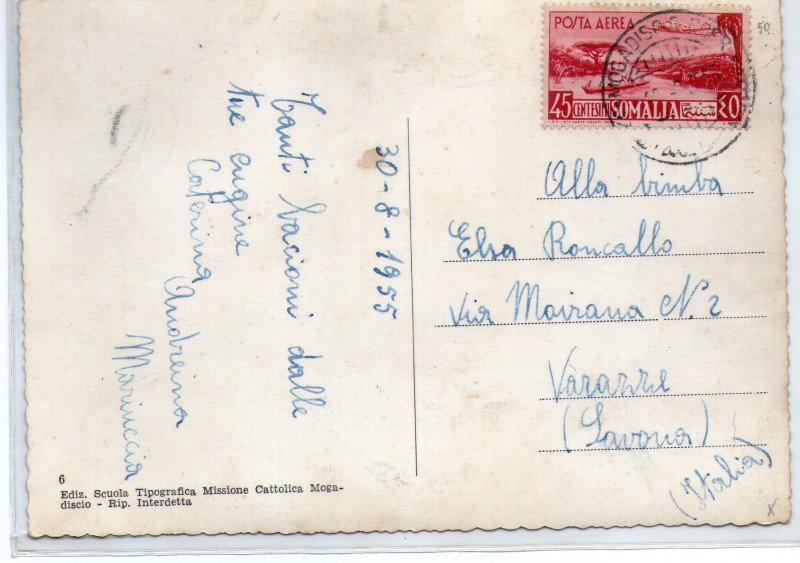 30-8-1955
Tanti bacioni dalle
tue cugine
Caterina
Andreina
Mariuccia
6
Ediz. Scuola Tipografica Missione Cattolica Moga-
discio - Rip. Interdetta
POSTA AEREA
45 CENTESIMI SOMALIA ٤٥
MOGADISCIO
50
Alla bimba
Elsa Roncallo
Via Mairana N. 2
Varazze
(Savona)
(Italia)
x